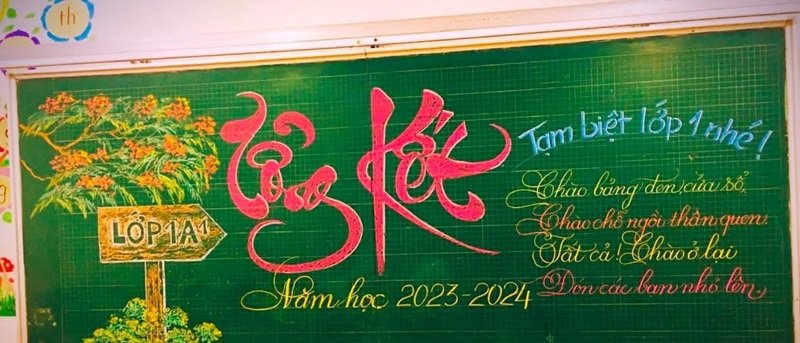 th
Tổng Kết
Tạm biệt lớp 1 nhé!
Chào bảng đen, cửa sổ,
Chào chỗ ngồi thân quen
Tất cả! Chào ở lại
Đón các bạn nhỏ lên,
LỚP 1A1
Năm học 2023-2024